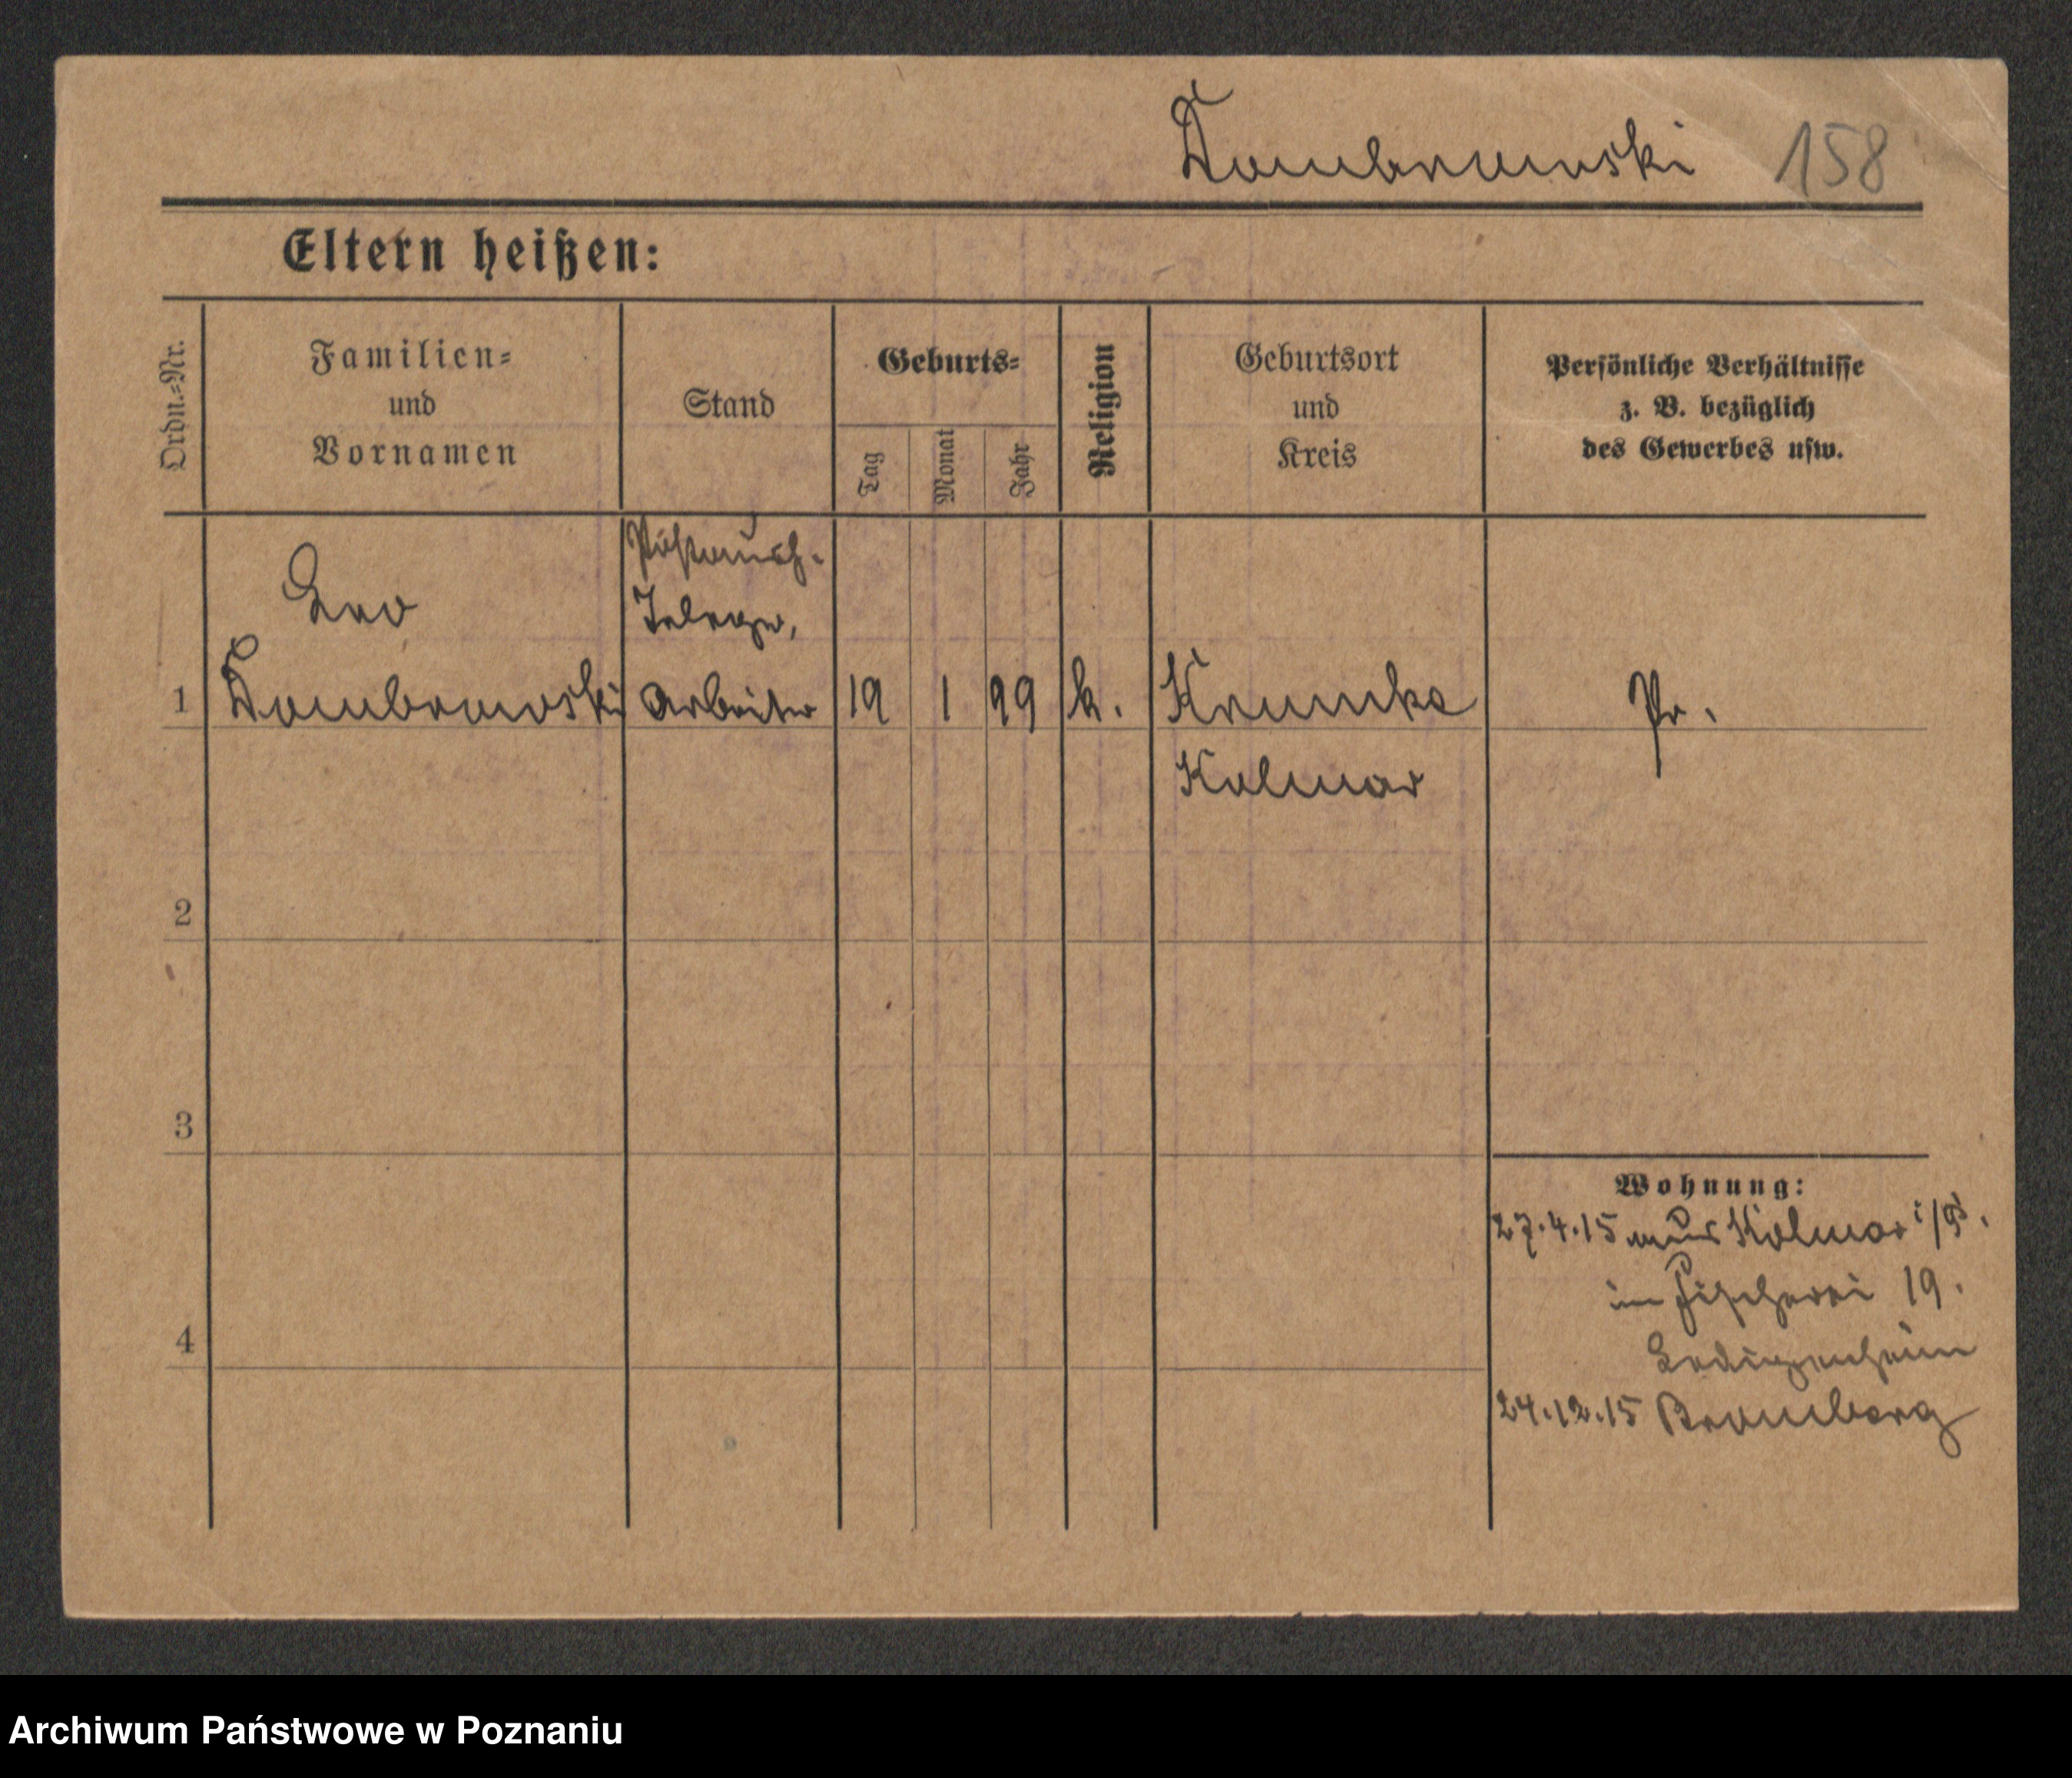 Dombrowski 158
Eltern heißen:
Ordn.=Nr.
Familien=
und
Vornamen
Stand
Geburts=
Tag
Monat
Jahr
Religion
Geburtsort
und
Kreis
Persönliche Verhältnisse
z. B. bezüglich
des Gewerbes usw.
Leo
Telegr.
1 Dombrowski Arbeiter 19 1 99 k. Krumke Pr.
Kolmar
2
3
Wohnung:
27.4.15 aus Kolmar i/P.
Fischerei 19.
4
Ledigenheim
24.12.15 Bromberg
Archiwum Państwowe w Poznaniu